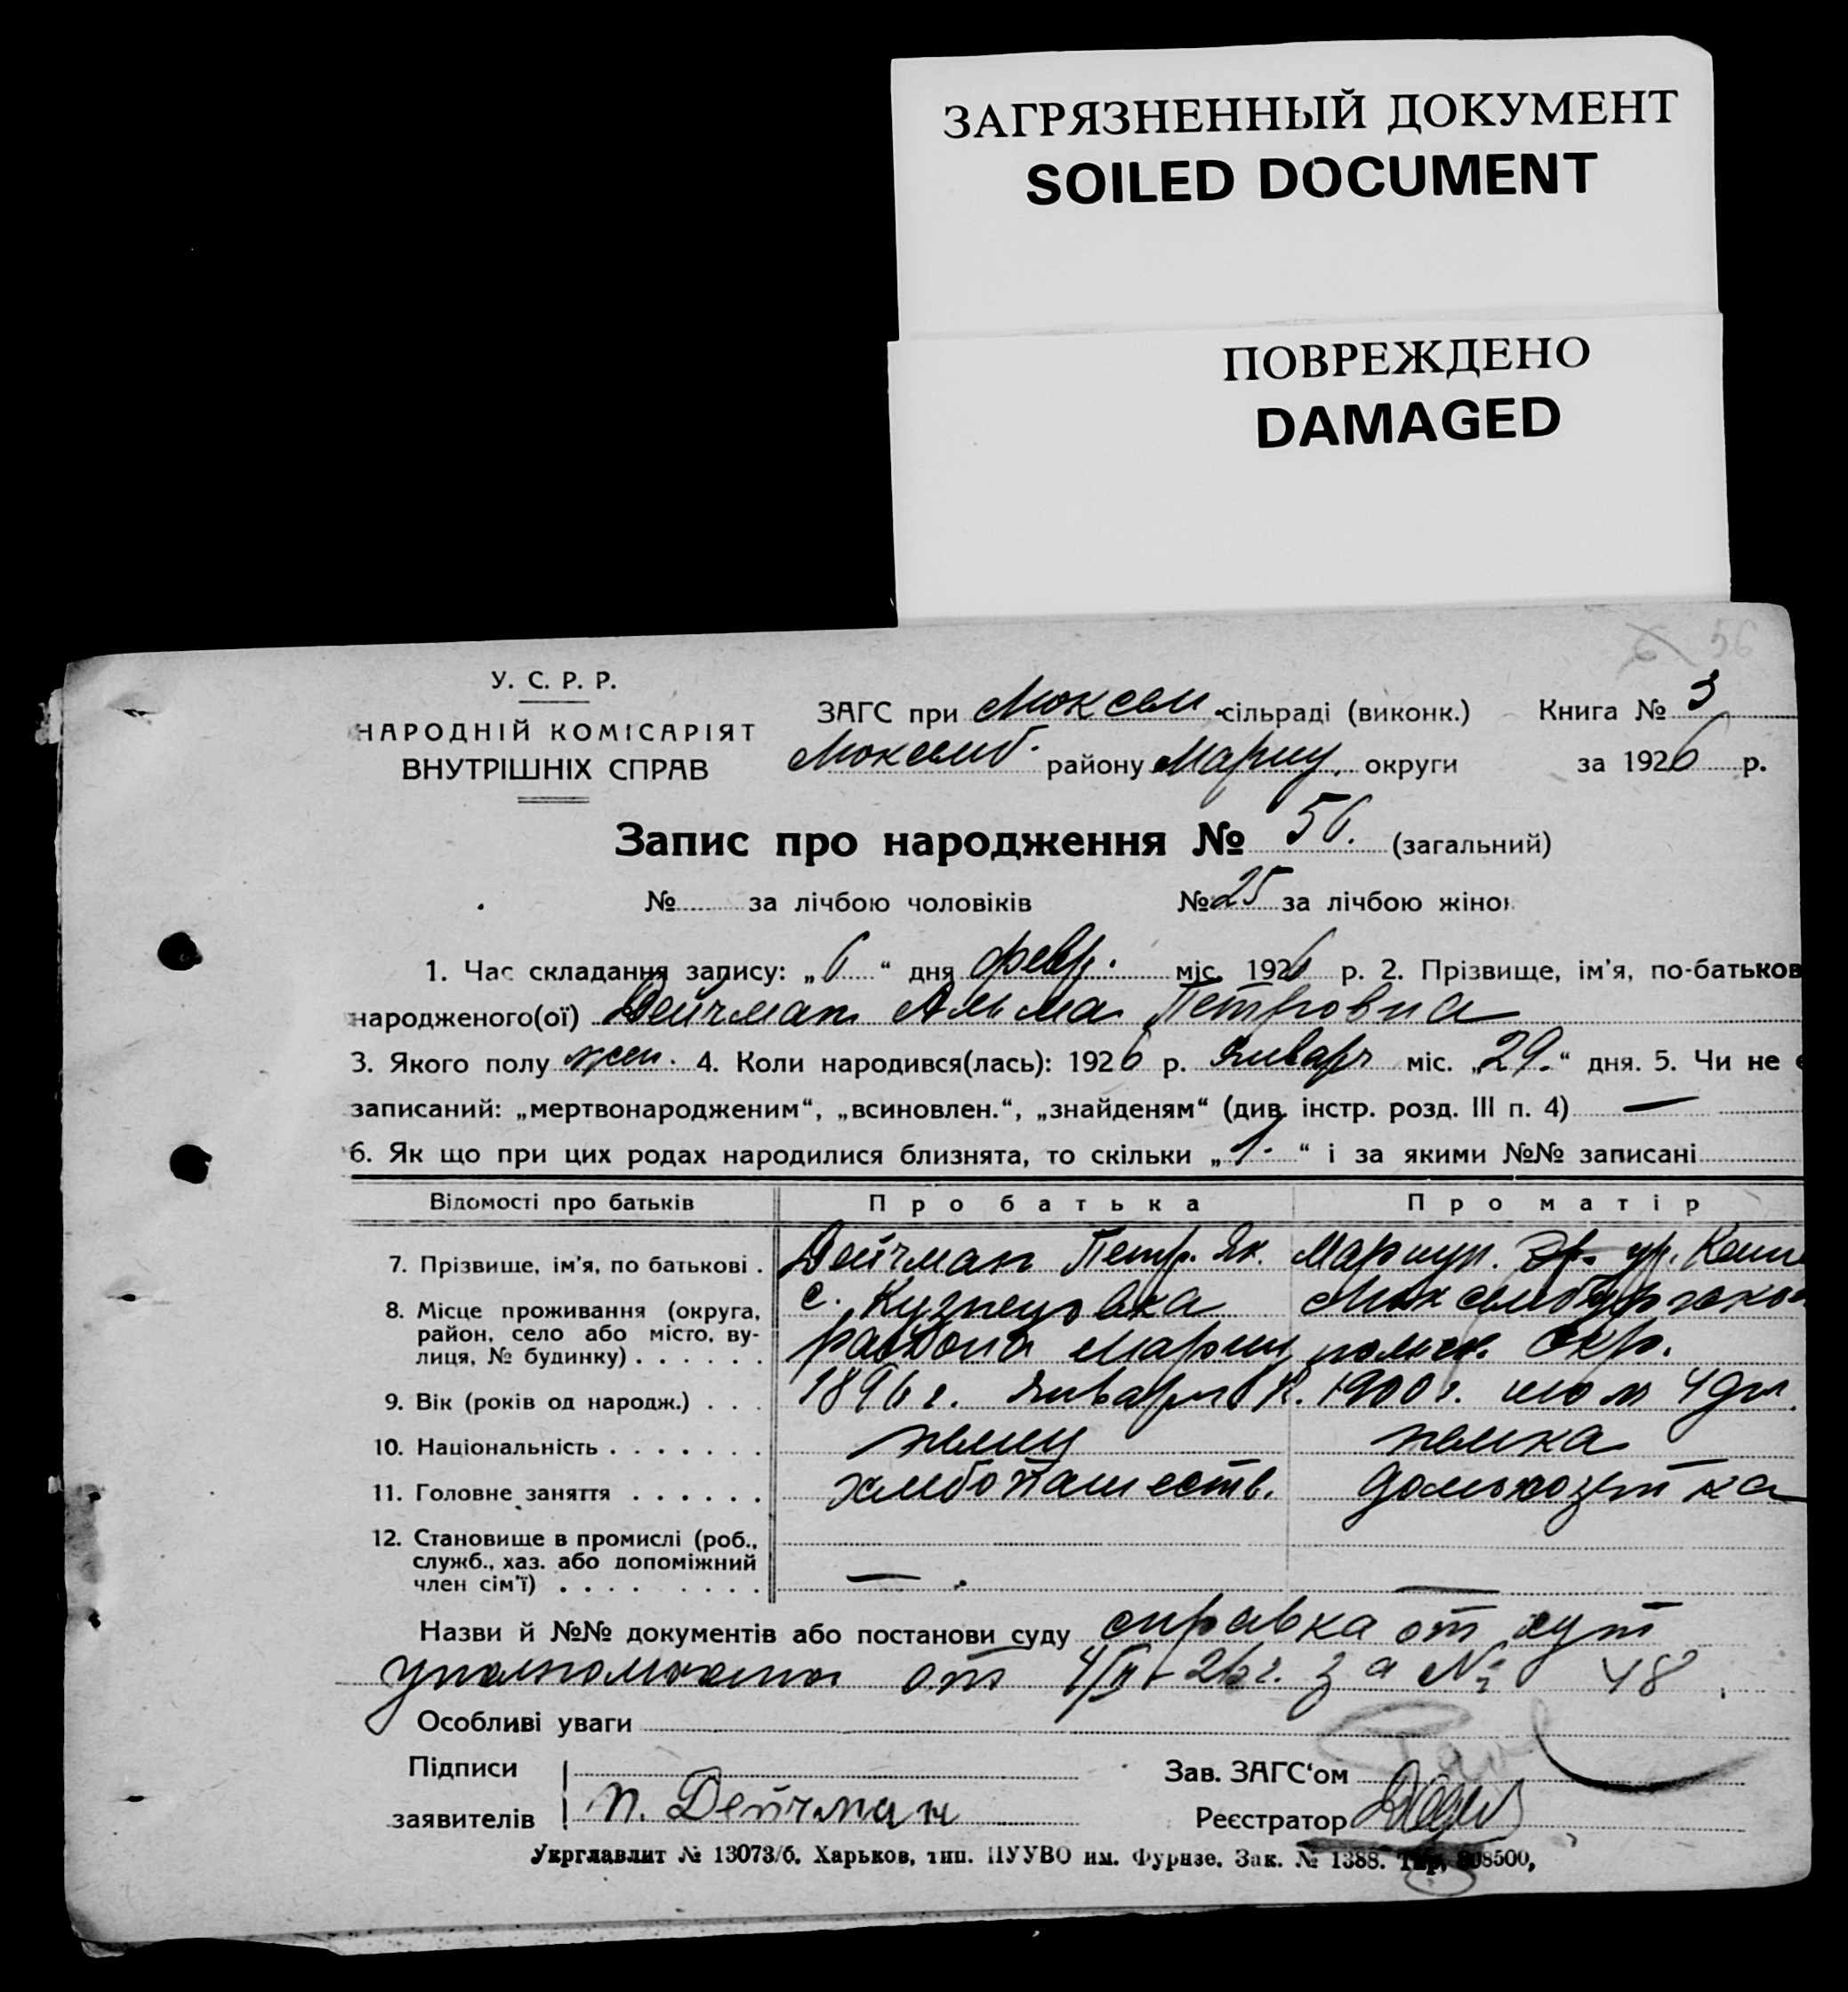 ЗАГРЯЗНЕННЫЙ ДОКУМЕНТ
SOILED DOCUMENT
ПОВРЕЖДЕНО
DAMAGED
6 56
У. С. Р. Р.
НАРОДНІЙ КОМІСАРІЯТ
ВНУТРІШНІХ СПРАВ
ЗАГС при Люксем. сільраді (виконк.) Книга № 3
Люксемб. району Мариу. округи за 1926 р.
Запис про народження № 56. (загальний)
№ за лічбою чоловіків № 25 за лічбою жінок
1. Час складання запису: „6“ дня февр. міс. 1926 р. 2. Прізвище, ім'я, по-батьков
народженого(ої) Дейчман Альма Петровна
3. Якого полу жен. 4. Коли народився(лась): 1926 р. январь міс. „29.“ дня. 5. Чи не є
записаний: „мертвонародженим“, „всиновлен.“, „знайденям“ (див. інстр. розд. III п. 4) —
6. Як що при цих родах народилися близнята, то скільки „1.“ і за якими №№ записані
Відомості про батьків Про батька Про матір
7. Прізвище, ім'я, по батькові . Дейчман Петр. Як. ур.
8. Місце проживання (округа, район, село або місто, ву-лиця, № будинку) . . . . . . с. Кузнецовка Люксембургского
района Мариупольск. Окр.
9. Вік (років од народж.) . . . 1896 г. января 1900 г.
10. Національність . . . . . . . немец немка
11. Головне заняття . . . . . . хлебопашеств. домохозяйка
12. Становище в промислі (роб., служб., хаз. або допоміжний член сім'ї) . . . . . . . . — —
Назви й №№ документів або постанови суду справка от хут
уполномочен от 4/II-26 г. за № 48.
Особливі уваги
Підписи
заявителів П. Дейчман
Зав. ЗАГС‘ом
Реєстратор
Укрглавлит № 13073/б. Харьков, тип. ПУУВО им. Фрунзе. Зак. № 1388. Тир. 808500,